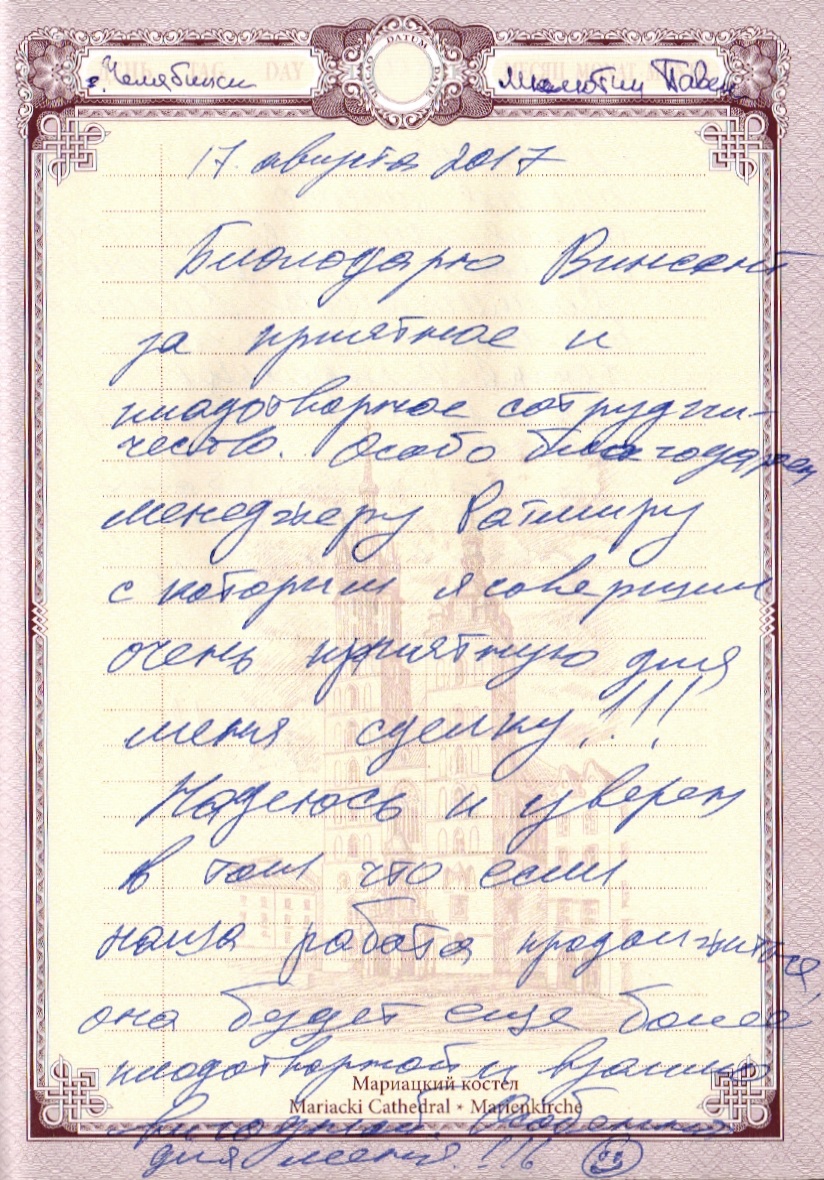 ДЕНЬ TAG DAY DATUM МЕСЯЦ MONAT
г. Челябинск Малютин Павел
17. августа 2017
Благодарю Винсент
за приятное и
плодотворное сотрудни-
чество. Особо благодарен
менеджеру Ратмиру
с которым я совершил
очень приятную для
меня сделку!!!
Надеюсь и уверен
в том что если
наша работа продолжиться,
она будет еще более
плодотворной и взаимо
Мариацкий костел
Mariacki Cathedral • Marienkirche
выгодной. Особенно
для меня!!!